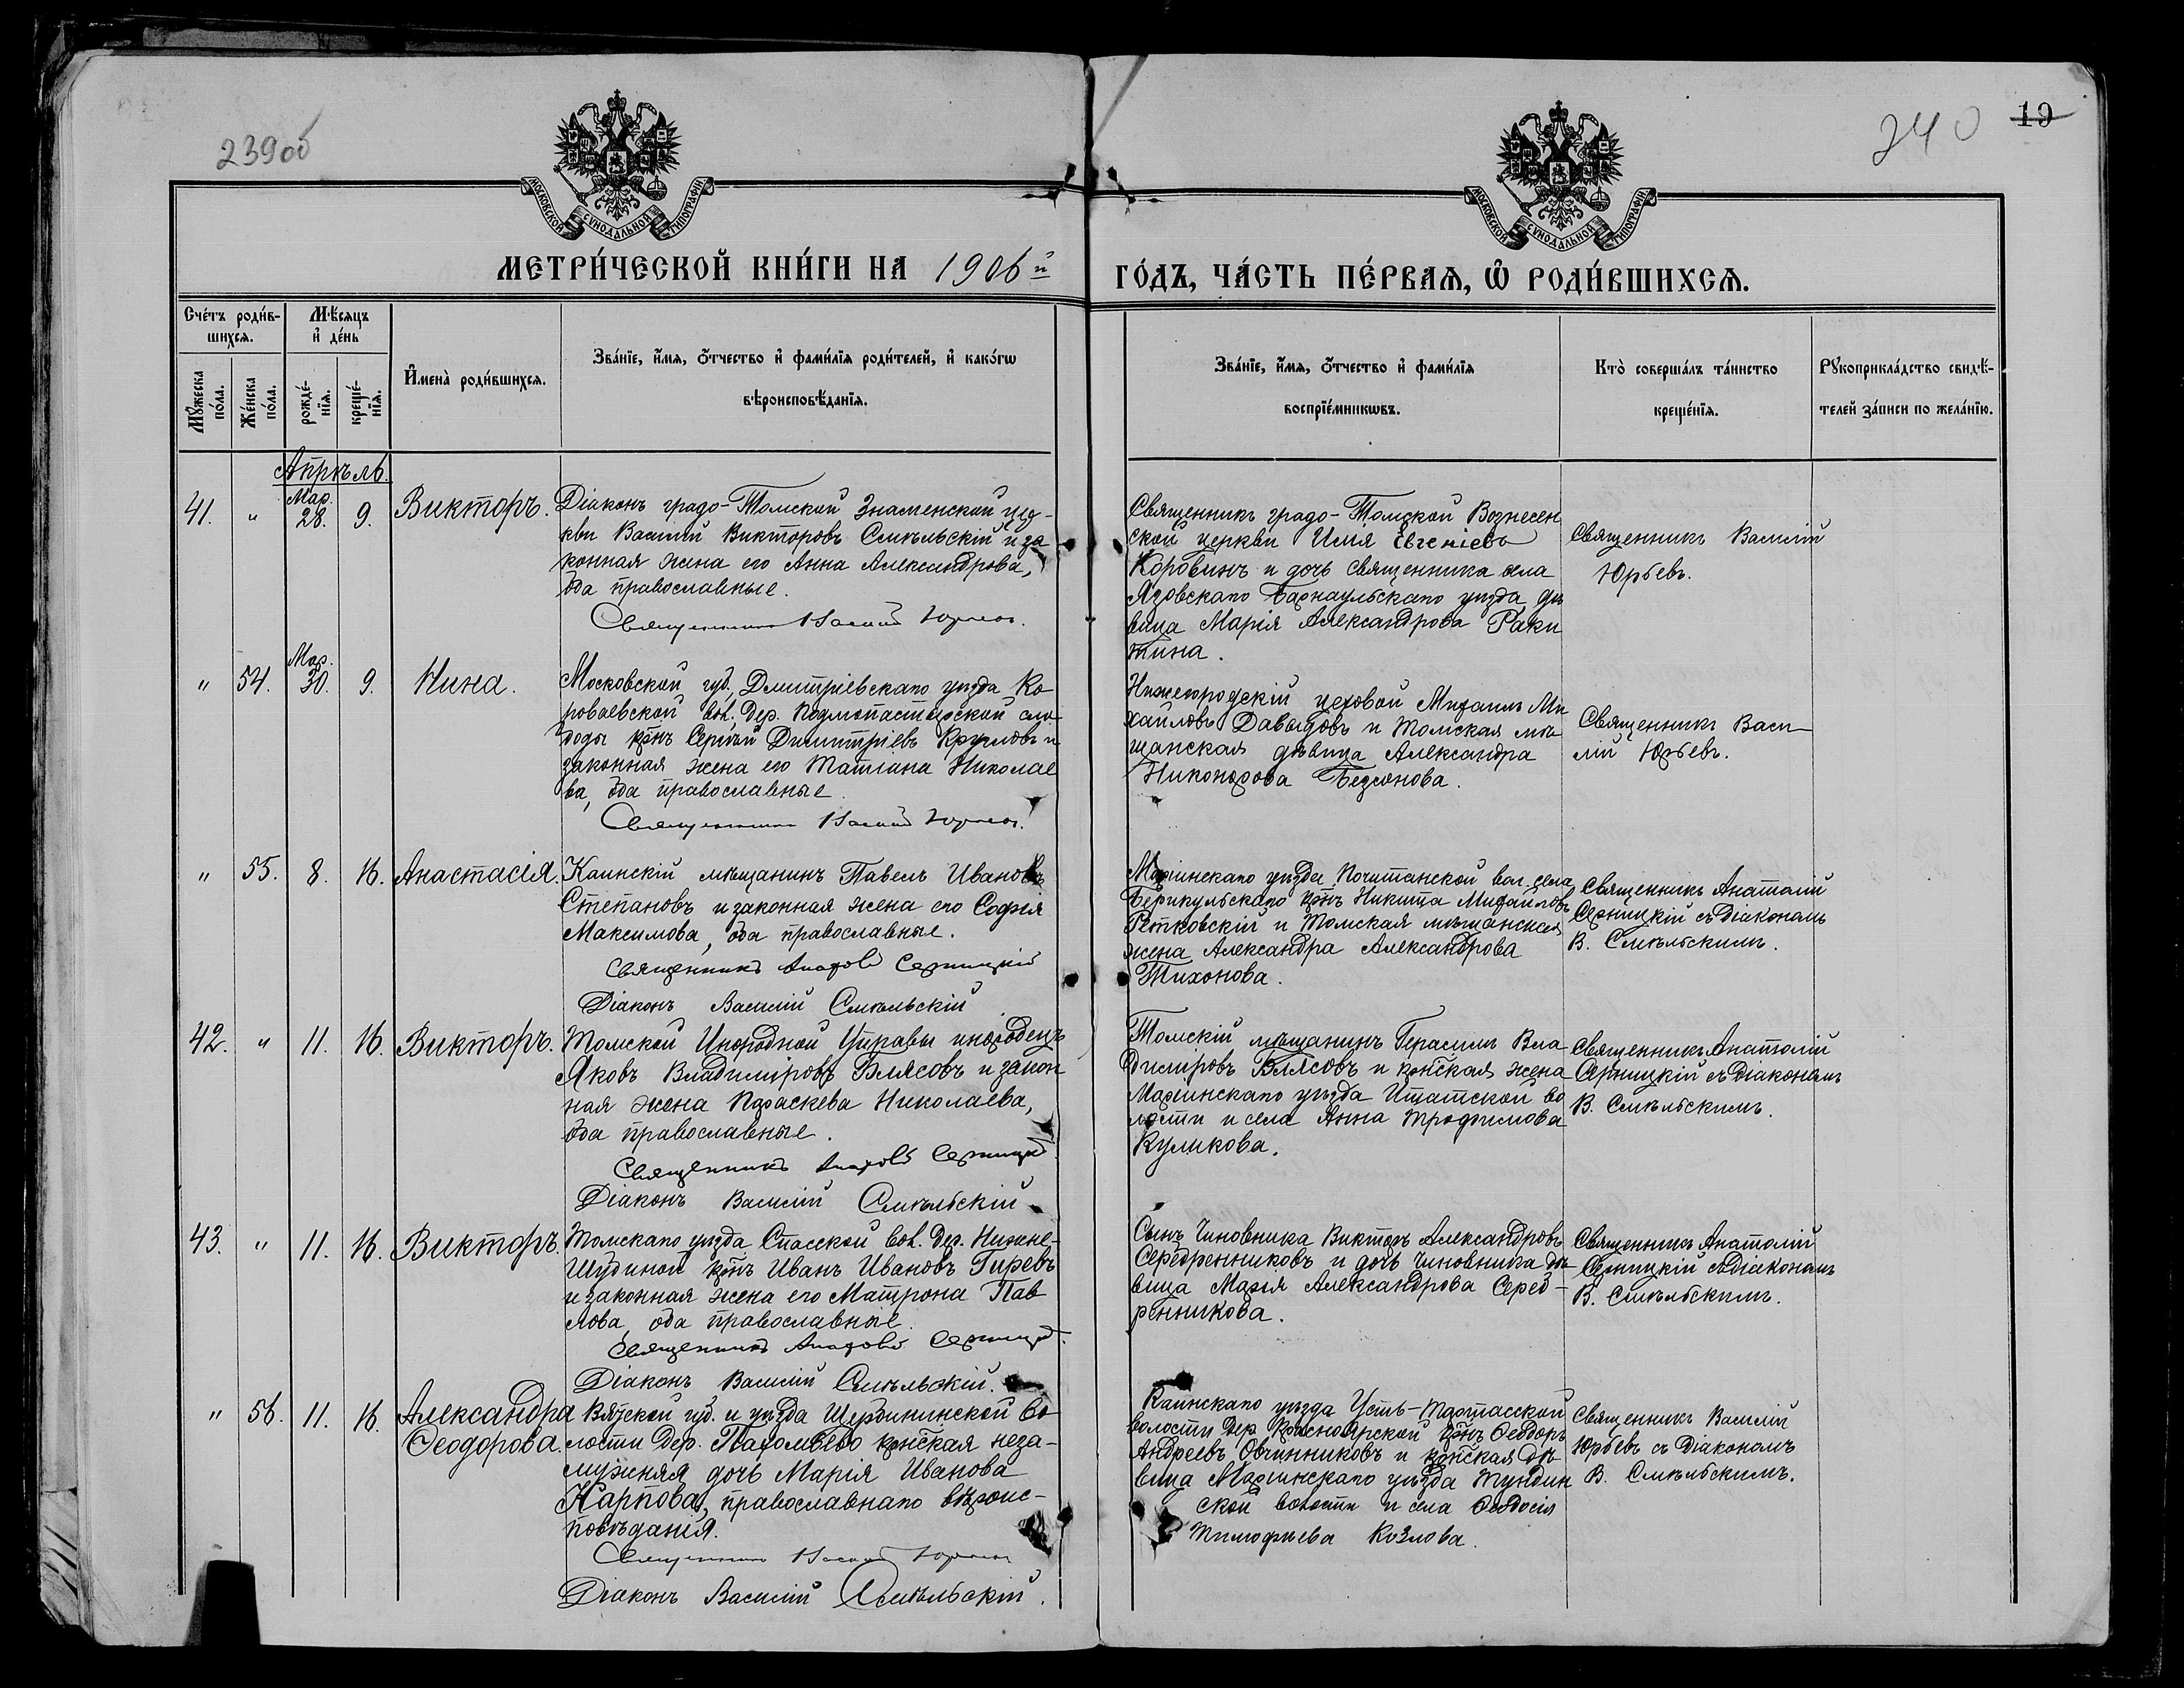 239об
240
19
МОСКОВСКОЙ СѴНОДАЛЬНОЙ ТИПОГРАФІИ
МОСКОВСКОЙ СѴНОДАЛЬНОЙ ТИПОГРАФІИ
МЕТРИ́ЧЕСКОЙ КНИ́ГИ НА 1906й
ГО́ДЪ, ЧА́СТЬ ПЕ́РВАЯ, Ѡ҆ РОДИ́ВШИХСЯ.
Сче́тъ роди́в-
шихся.
Мꙋжеска по́ла.
Же́нска по́ла.
Мѣ́сяцъ
и҆ де́нь
рожде́-
нїѧ.
креще́-
нїѧ.
И҆мена̀ роди́вшихся.
Зва́нїе, и҆́мѧ, ѻ҆́тчество и҆ фами́лїѧ роди́телей, и҆ како́гѡ
вѣроисповѣ́данїѧ.
Зва́нїе, и҆́мѧ, ѻ҆́тчество и҆ фами́лїѧ
воспрїе́мникѡвъ.
Кто̀ соверша́лъ та́инство
креще́нїѧ.
Рꙋкоприкла́дство свидѣ́-
телей за́писи по жела́нїю.
Апрѣль.
41. " Мар. 28. 9. Викторъ.
Діаконъ градо-Томской Знаменской цер-
кви Василій Викторовъ Смѣльскій и за
конная жена его Анна Александрова,
оба православные.
Священникъ Василій Юрьевъ.
Священникъ градо-Томской Вознесен
ской церкви Илія Евгеніевъ
Коровинъ и дочь священника села
Язовскаго Барнаульскаго уѣзда дѣ
вица Марія Александрова Раки
тина.
Священникъ Василій
Юрьевъ.
" 54. Мар. 30. 9. Нина.
Московской губ., Дмитріевскаго уѣзда Ко-
роваевской вол. дер. Подмонастырской сло-
боды крнъ Сергѣй Димитріевъ Кругловъ и
законная жена его Татіана Николае
ва, оба православные.
Священникъ Василій Юрьевъ.
Нижегородскій цеховой Михаилъ Ми
хайловъ Давыдовъ и Томская мѣ-
щанская дѣвица Александра
Никонорова Безсонова.
Священникъ Васи-
лій Юрьевъ.
" 55. 8. 16. Анастасія.
Каинскій мѣщанинъ Павелъ Ивановъ
Степановъ и законная жена его Софія
Максимова, оба православные.
Священникъ Анатолій Серницкій
Діаконъ Василій Смѣльскій
Маріинскаго уѣзда, Почитанской вол. села
Берикульскаго крнъ Никита Михайловъ
Ретковскій и Томская мѣщанская
жена Александра Александрова
Тихонова.
Священникъ Анатолій
Серницкій съ діакономъ
В. Смѣльскимъ.
42. " 11. 16. Викторъ.
Томской Инородной Управы инородецъ
Яковъ Владиміровъ Блясовъ и закон
ная жена Параскева Николаева,
оба православные.
Священникъ Анатолій Серницкій
Діаконъ Василій Смѣльскій
Томскій мѣщанинъ Герасимъ Вла-
диміровъ Блясовъ и крнская жена
Маріинскаго уѣзда Итатской во
лости и села Анна Трофимова
Куликова.
Священникъ Анатолій
Серницкій съ діакономъ
В. Смѣльскимъ.
43. " 11. 16. Викторъ.
Томскаго уѣзда Спасской вол. дер. Нижне-
Шубиной крнъ Иванъ Ивановъ Гиревъ
и законная жена его Матрона Пав
лова, оба православные.
Священникъ Анатолій Серницкій.
Діаконъ Василій Смѣльскій.
Сынъ чиновника Викторъ Александровъ
Серебренниковъ и дочь чиновника дѣ-
вица Марія Александрова Сереб-
ренникова.
Священникъ Анатолій
Серницкій съ діакономъ
В. Смѣльскимъ.
" 56. 11. 16. Александра
Ѳеодорова.
Вятской губ. и уѣзда Щербининской во
лости дер. Пахомьево крнская неза-
мужняя дочь Марія Иванова
Карпова, православнаго вѣроис-
повѣданія.
Священникъ Василій Юрьевъ
Діаконъ Василій Смѣльскій.
Каинскаго уѣзда Усть-Тартасской
волости дер. Красноярской крнъ Ѳеодоръ
Андреевъ Овчинниковъ и крнская дѣ
вица Маріинскаго уѣзда Тундин
ской волости и села Ѳеодосія
Тимофѣева Козлова.
Священникъ Василій
Юрьевъ съ діакономъ
В. Смѣльскимъ.